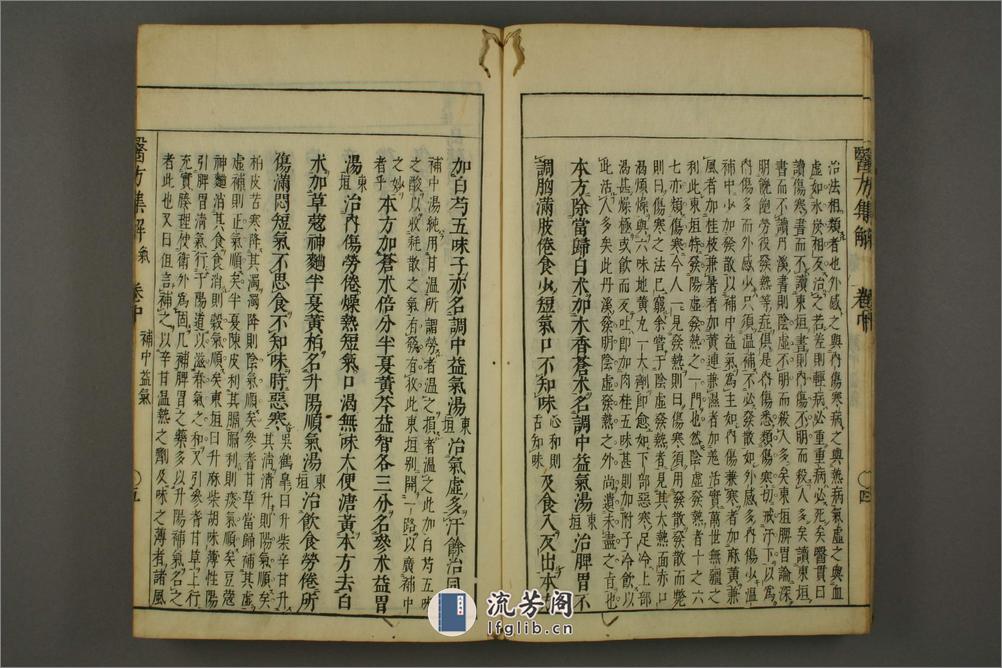 治法相類者也外感之與內傷寒病之與熱病氣虛之與血
虛如氷炭相反治之若差則輕病必重重病必死矣醫貫曰
讀傷寒書而不讀東垣書則內傷不明而殺人多矣讀東垣
書而不讀丹溪書則陰虛不明而殺人多矣東垣脾胃論深
明饑飽勞役發熱等症俱是內傷悉類傷寒切戒汗下以為
內傷多而外感少只須溫補不必發散如外感多內傷少溫
補中少加發散以補中益氣為主如內傷兼寒者加麻黃兼
風者加桂枝兼暑者加黃連兼濕者加羗活實萬世無疆之
利此東垣特發陽虛發熱之一門也然陰虛發熱者十之六
七亦類傷寒今人一見發熱則曰傷寒須用發散發散而斃
則曰傷寒之法已窮余嘗于陰虛發熱者見其大熱面赤口
渴煩燥與六味地黃丸一大劑即愈如下部惡寒足冷上部
渴甚燥極或飲而反吐即加肉桂五味甚則加附子冷飲以
此活人多矣此丹溪發明陰虛發熱之外尚遺未盡之旨也
本方除當歸白朮加木香蒼朮名調中益氣湯 東垣 治脾胃不
調胸滿肢倦食少短氣口不知味 心和則舌知味 及食入反出本方
加白芍五味子亦名調中益氣湯 東垣 治氣虛多汗餘治同前
補中湯純用甘溫所謂勞者溫之損者溫之此加白芍五味
之酸以收耗散之氣有發有收此東垣別開一路以廣補中
之妙者乎 本方加蒼朮倍分半夏黃芩益智各三分名參朮益胃
湯 東垣 治內傷勞倦燥熱短氣口渴無味大便溏黃本方去白
朮加草蔻神麯半夏黃栢名升陽順氣湯 東垣 治飲食勞倦所
傷滿悶短氣不思食不知味時惡寒 吳鶴皋曰升柴辛甘升其清清升則陽氣順矣
栢皮苦寒降其濁濁降則陰氣順矣參耆甘草當歸補其虛
虛補則正氣順矣半夏陳皮利其膈膈利則痰氣順矣豆蔻
神麯消其食食消則穀氣順矣東垣曰升麻柴胡味薄性陽
引脾胃清氣行于陽道以滋春氣之和又引參耆甘草上行
充實腠理使衛外為固凡補脾胃之藥多以升陽補氣名之
者此也又曰但言補之以辛甘溫熱之劑及味之薄者諸風
醫方集解 卷中 四
醫方集解 氣 卷中 補中益氣 五
流芳阁
lfglib.cn